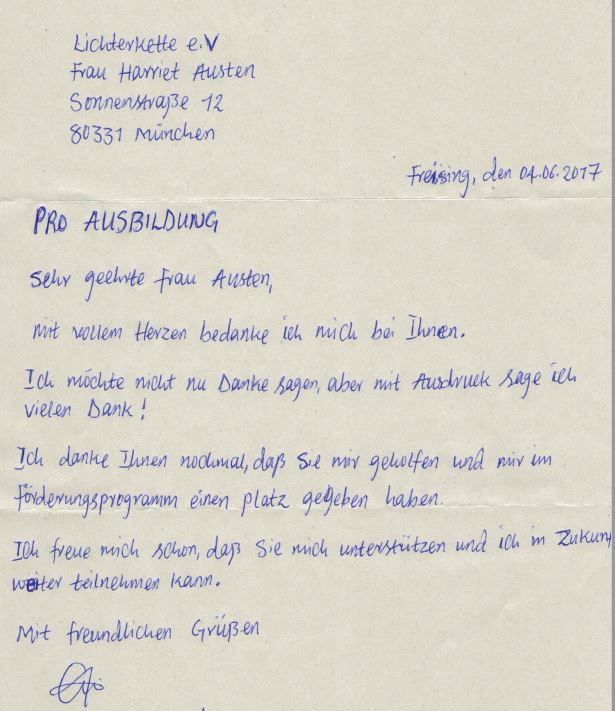 Lichterkette e.V
Frau Harriet Austen
Sonnenstraße 12
80331 München
Freising, den 04.06.2017
PRO AUSBILDUNG
Sehr geehrte Frau Austen,
mit vollem Herzen bedanke ich mich bei Ihnen.
Ich möchte nicht nu Danke sagen, aber mit Ausdruck sage ich
vielen Dank!
Ich danke Ihnen nochmal, daß Sie mir geholfen und mir im
förderungsprogramm einen platz gegeben haben.
Ich freue mich schon, daß Sie mich unterstützen und ich in Zukunft
weiter teilnehmen kann.
Mit freundlichen Grüßen